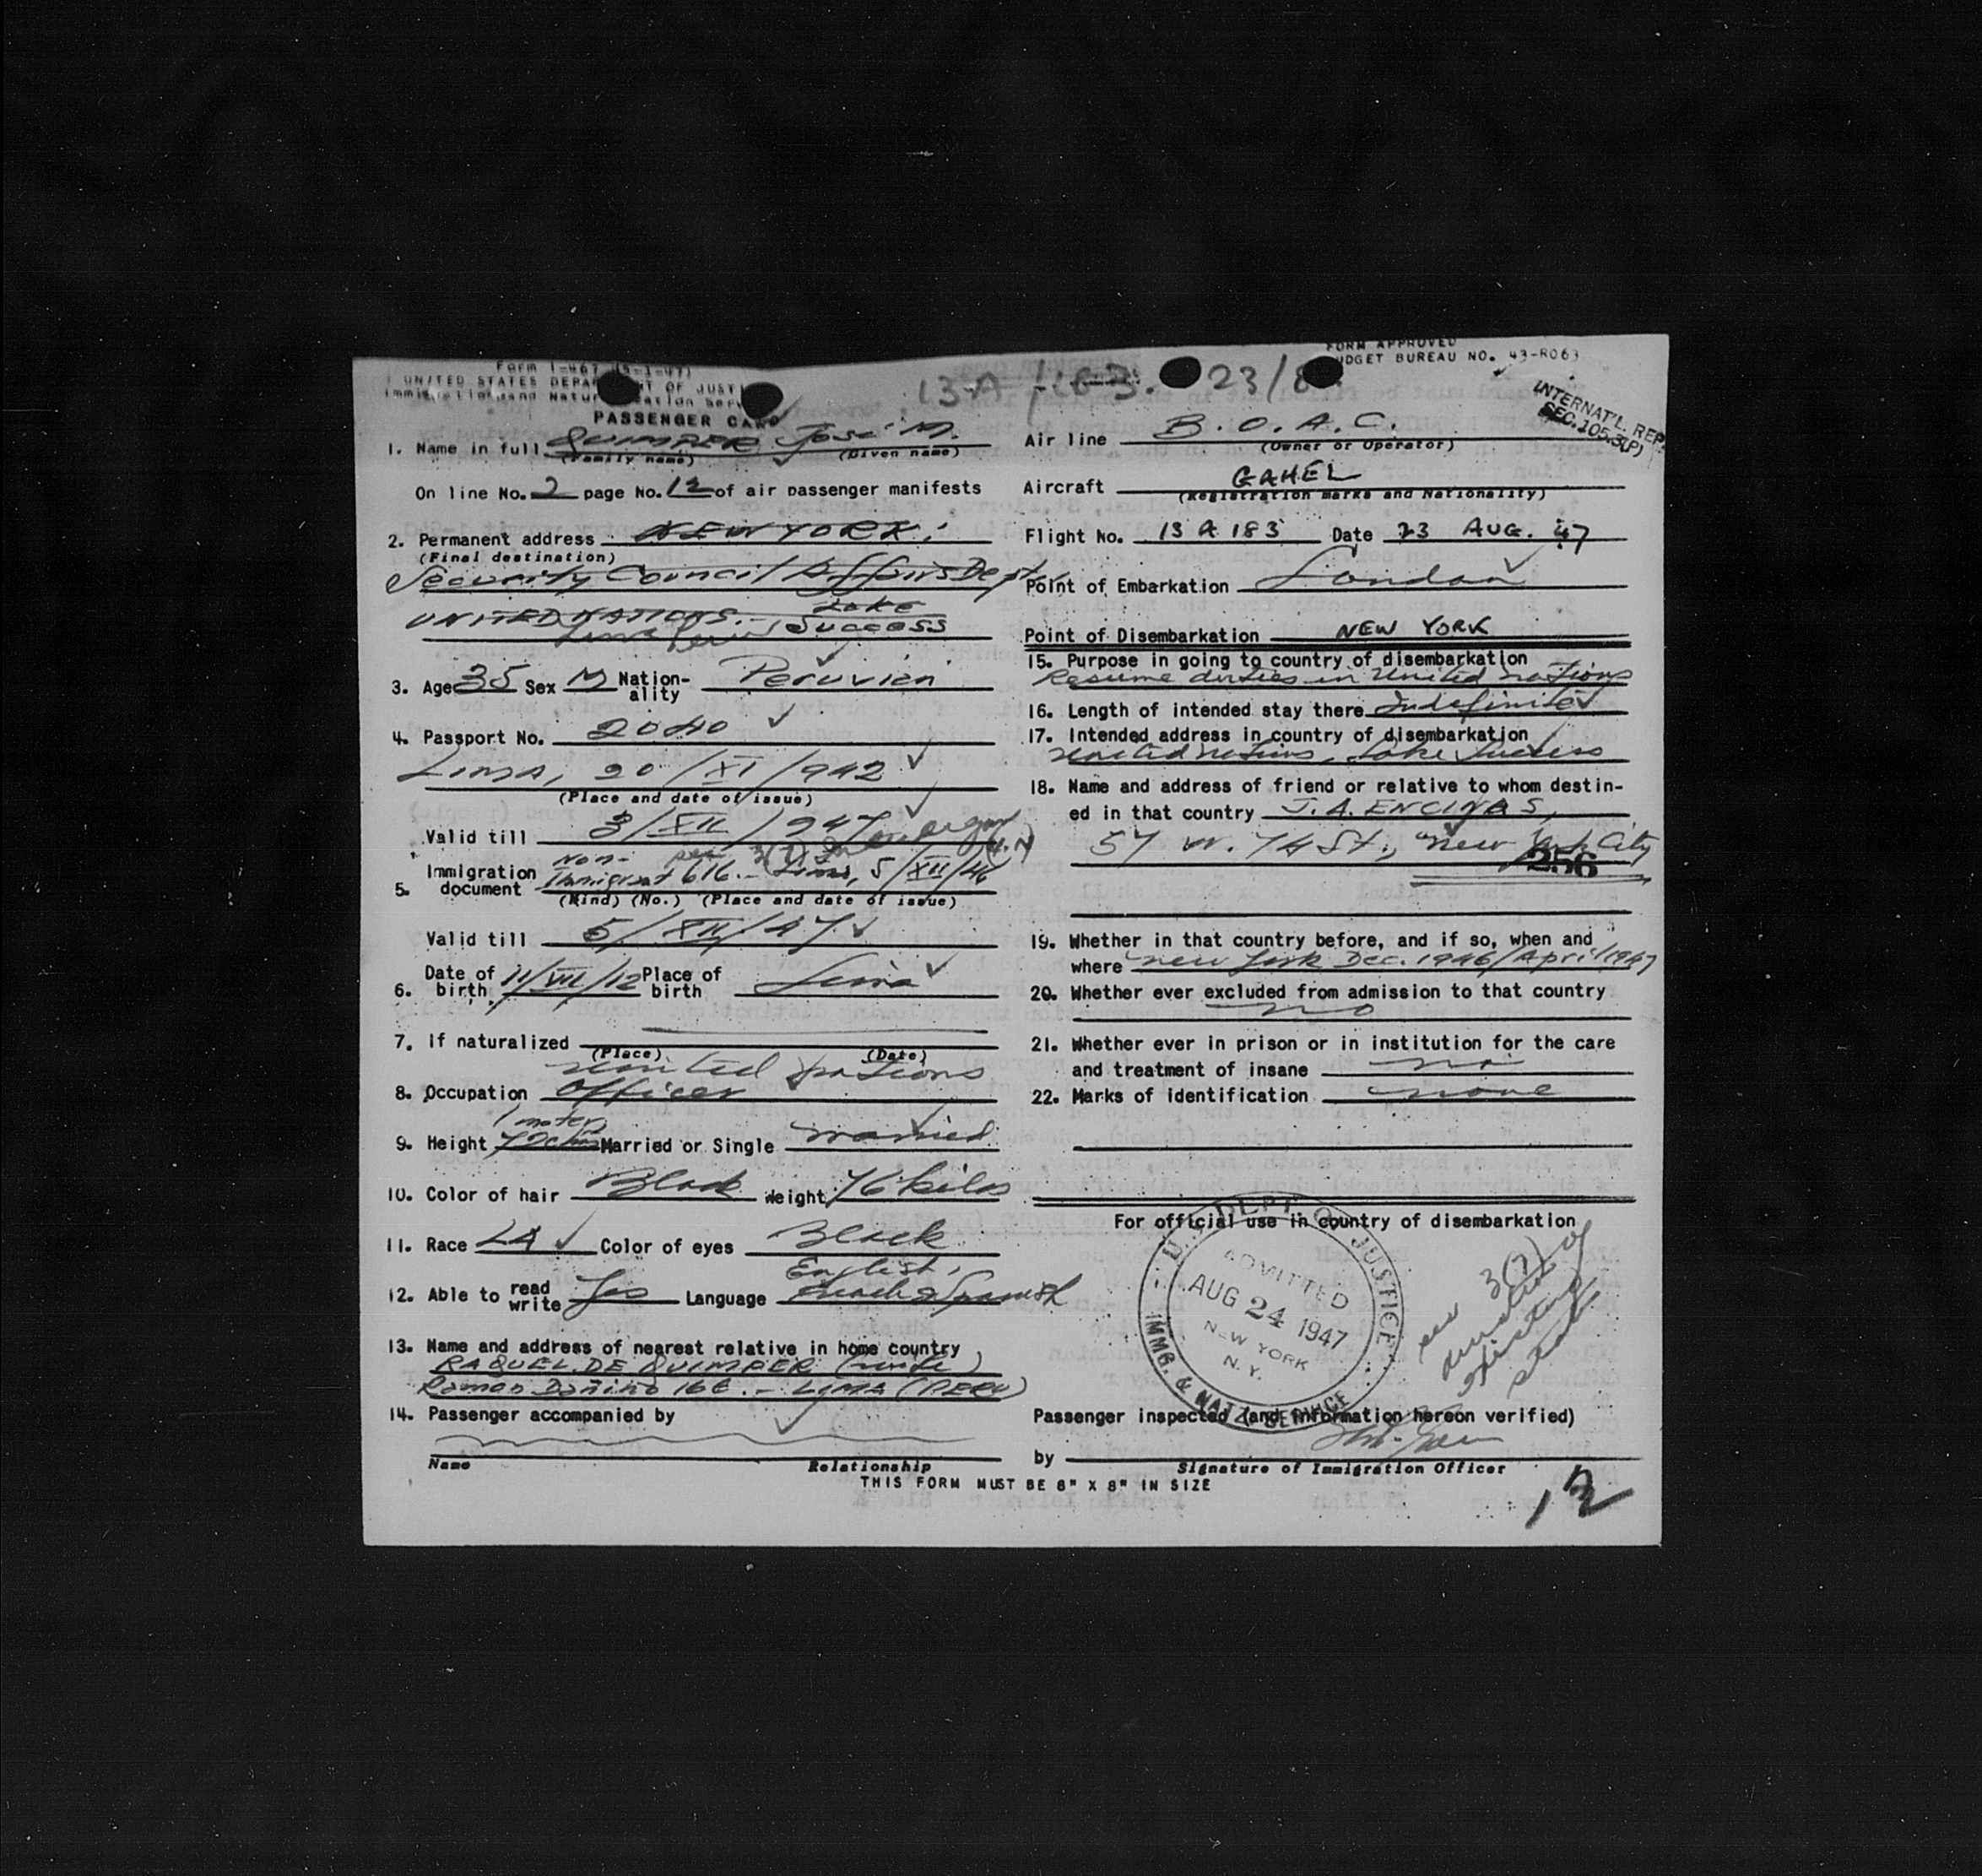 Form I-467 (5-1-47)
UNITED STATES DEPARTMENT OF JUSTICE
Immigration and Naturalization Service
PASSENGER CARD
13A-183. 23/8
FORM APPROVED
BUDGET BUREAU NO. 43-R063
INTERNAT'L. REP.
SEC. 105.3(P)
1. Name in full QUIMPER José M.
(Family name) (Given name)
On line No. 2 page No. 12 of air passenger manifests
2. Permanent address NEW YORK.
(Final destination)
Security Council Affairs Dept.
UNITED NATIONS. - Lake
Success
Lima Peru
3. Age 35 Sex M Nationality Peruvian
4. Passport No. 2040
Lima, 20/XI/942
(Place and date of issue)
Valid till 3/XII/947
5. Immigration document Non-Immigrant 616. - Lima, 5/XII/46
sec 3(7)
(Kind) (No.) (Place and date of issue)
Valid till 5/XII/47
6. Date of birth 11/VII/12 Place of birth Lima
7. If naturalized
(Place) (Date)
United Nations
8. Occupation Officer
9. Height 1 meter 72 cms Married or Single married
10. Color of hair Black Weight 76 kilos
11. Race LA Color of eyes Black
12. Able to read write Yes Language English, French & Spanish
13. Name and address of nearest relative in home country
RAQUEL DE QUIMPER (wife)
Ramon Dañino 166. - LIMA (PERU)
14. Passenger accompanied by
Name Relationship
Air line B.O.A.C.
(Owner or Operator)
Aircraft GAHEL
(Registration marks and Nationality)
Flight No. 13 A 183 Date 23 AUG. 47
Point of Embarkation London
Point of Disembarkation NEW YORK
15. Purpose in going to country of disembarkation
Resume duties in United Nations
16. Length of intended stay there Indefinite
17. Intended address in country of disembarkation
United Nations, Lake Success
18. Name and address of friend or relative to whom destined in that country J. A. ENCINAS,
57 W. 74 St., New York City
256
19. Whether in that country before, and if so, when and
where New York Dec. 1946/April/1947
20. Whether ever excluded from admission to that country
no
21. Whether ever in prison or in institution for the care
and treatment of insane no
22. Marks of identification none
For official use in country of disembarkation
U.S. DEPT. OF JUSTICE
ADMITTED
AUG 24 1947
NEW YORK
N.Y.
IMMG. & NATZ. SERVICE
sec 3(7)
duration of
status
Passenger inspected (and information hereon verified)
by
Signature of Immigration Officer
THIS FORM MUST BE 8" X 8" IN SIZE
12